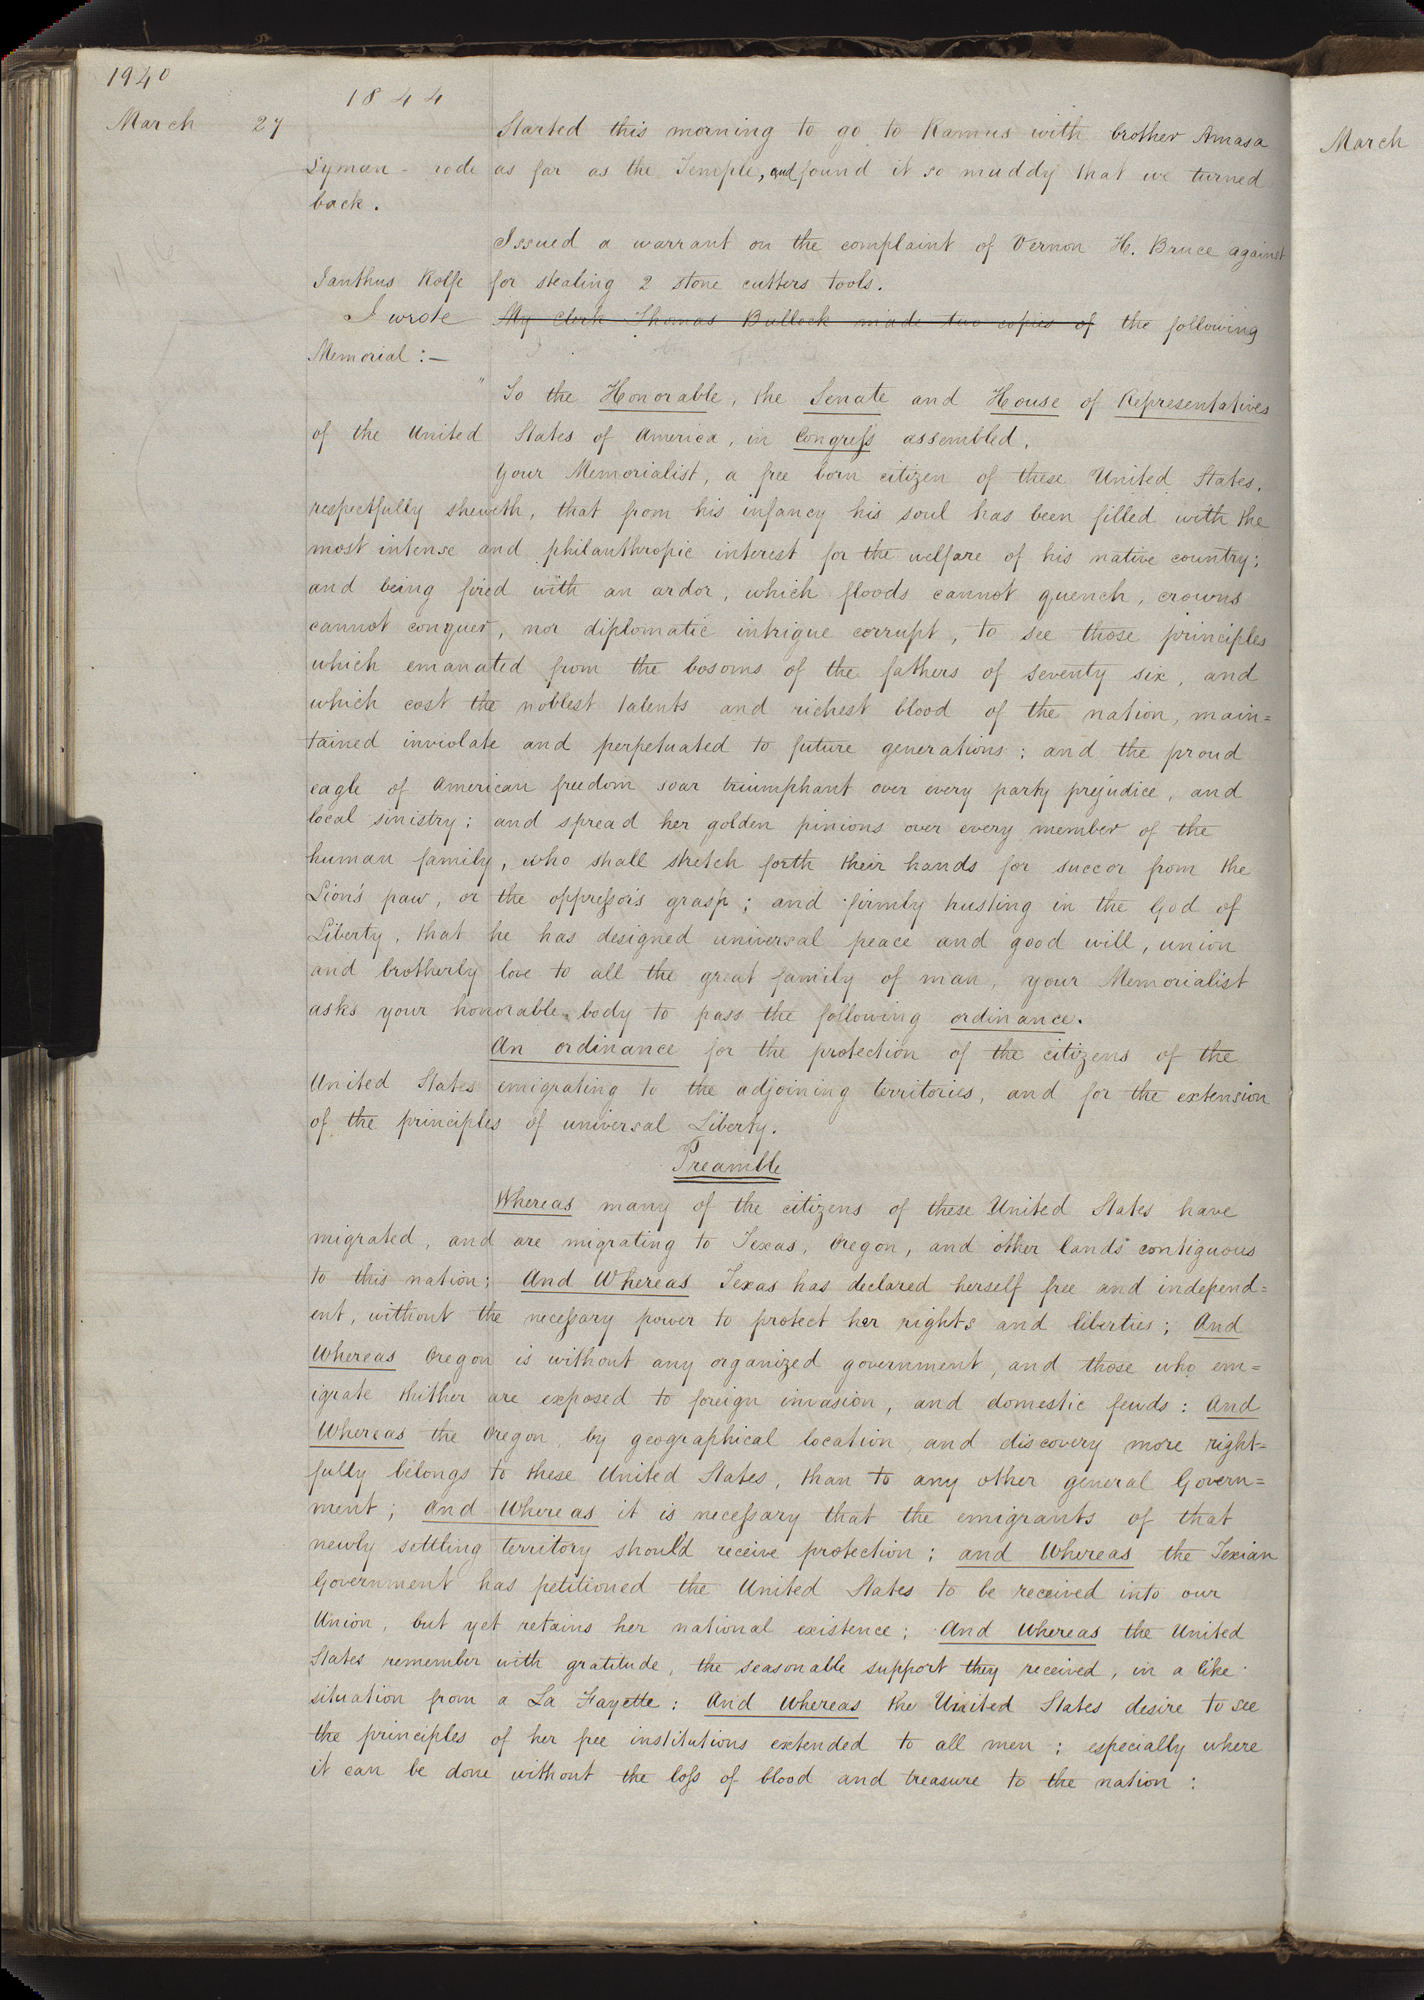 1940
1844
March 27 Started this morning to go to Ramus with brother Amasa
Lyman - rode as far as the Temple, and found it so muddy that we turned
back.
Issued a warrant on the complaint of Vernon H. Bruce against
Ianthus Rolfe for stealing 2 stone cutters tools.
I wrote My clerk Thomas Bullock made two copies of the following
Memorial :—
" To the Honorable, the Senate and House of Representatives
of the United States of America, in Congress assembled.
Your Memorialist, a free born citizen of these United States,
respectfully sheweth, that from his infancy his soul has been filled with the
most intense and philanthropic interest for the welfare of his native country;
and being fired with an ardor, which floods cannot quench, crowns
cannot conquer, nor diplomatic intrigue corrupt, to see those principles
which emanated from the bosoms of the fathers of seventy six, and
which cost the noblest talents and richest blood of the nation, main=
tained inviolate and perpetuated to future generations; and the proud
eagle of American freedom soar triumphant over every party prejudice, and
local sinistry; and spread her golden pinions over every member of the
human family, who shall stretch forth their hands for succor from the
Lion's paw, or the oppressor's grasp; and firmly trusting in the God of
Liberty, that he has designed universal peace and good will, union
and brotherly love to all the great family of man, your Memorialist
asks your honorable body to pass the following ordinance.
An ordinance for the protection of the citizens of the
United States emigrating to the adjoining territories, and for the extension
of the principles of universal Liberty.
Preamble
Whereas many of the citizens of these United States have
migrated, and are migrating to Texas, Oregon, and other lands contiguous
to this nation; And Whereas Texas has declared herself free and independ=
ent, without the necessary power to protect her rights and liberties; And
Whereas Oregon is without any organized government, and those who em=
igrate thither are exposed to foreign invasion, and domestic feuds: And
Whereas the Oregon, by geographical location, and discovery more right=
fully belongs to these United States, than to any other general Govern=
ment; And Whereas it is necessary that the emigrants of that
newly settling territory should receive protection; and Whereas the Texian
Government has petitioned the United States to be received into our
Union, but yet retains her national existence; And Whereas the United
States remember with gratitude, the seasonable support they received, in a like
situation from a La Fayette: And Whereas the United States desire to see
the principles of her free institutions extended to all men; especially where
it can be done without the loss of blood and treasure to the nation:
March